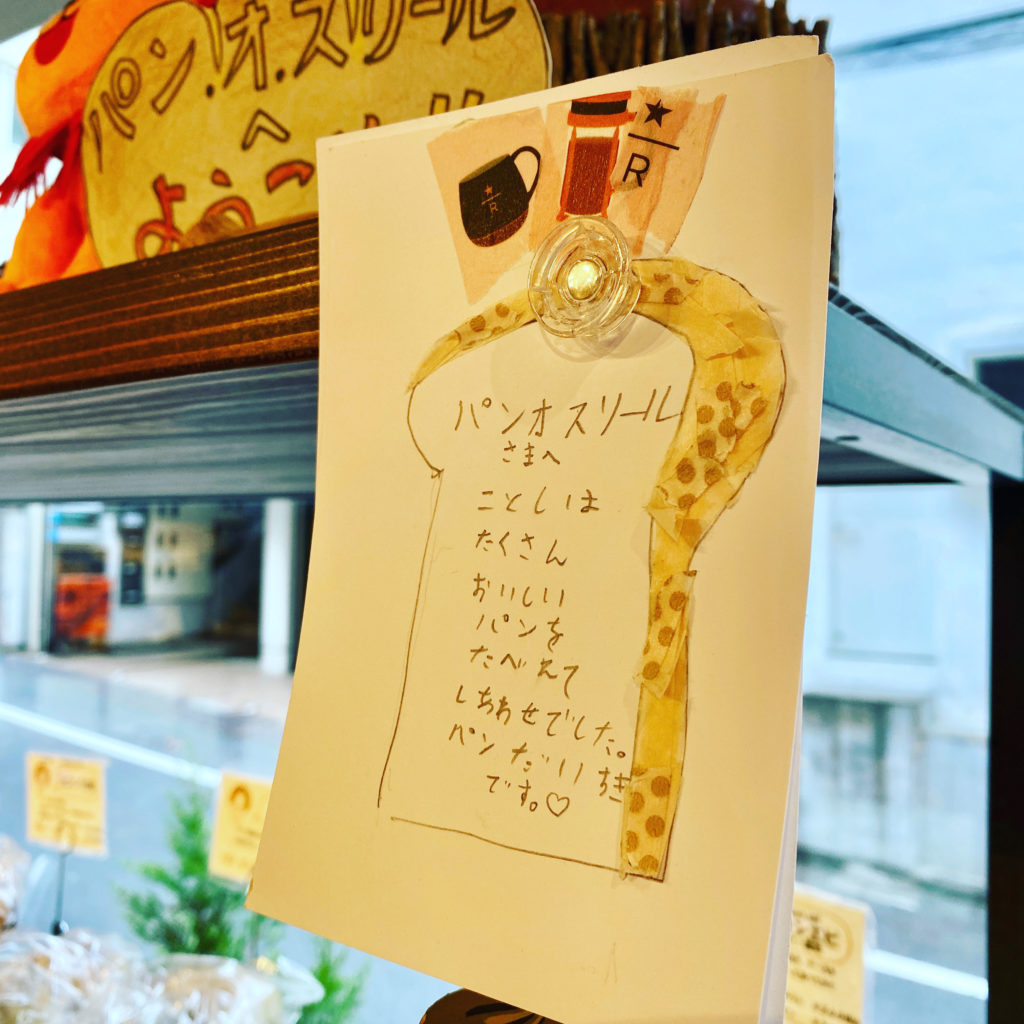 パン.オ.スリール
へ
ようこ
R
R
パンオスリール
さまへ
ことしは
たくさん
おいしい
パンを
たべれて
しあわせでした。
パンだいすき
です。♡